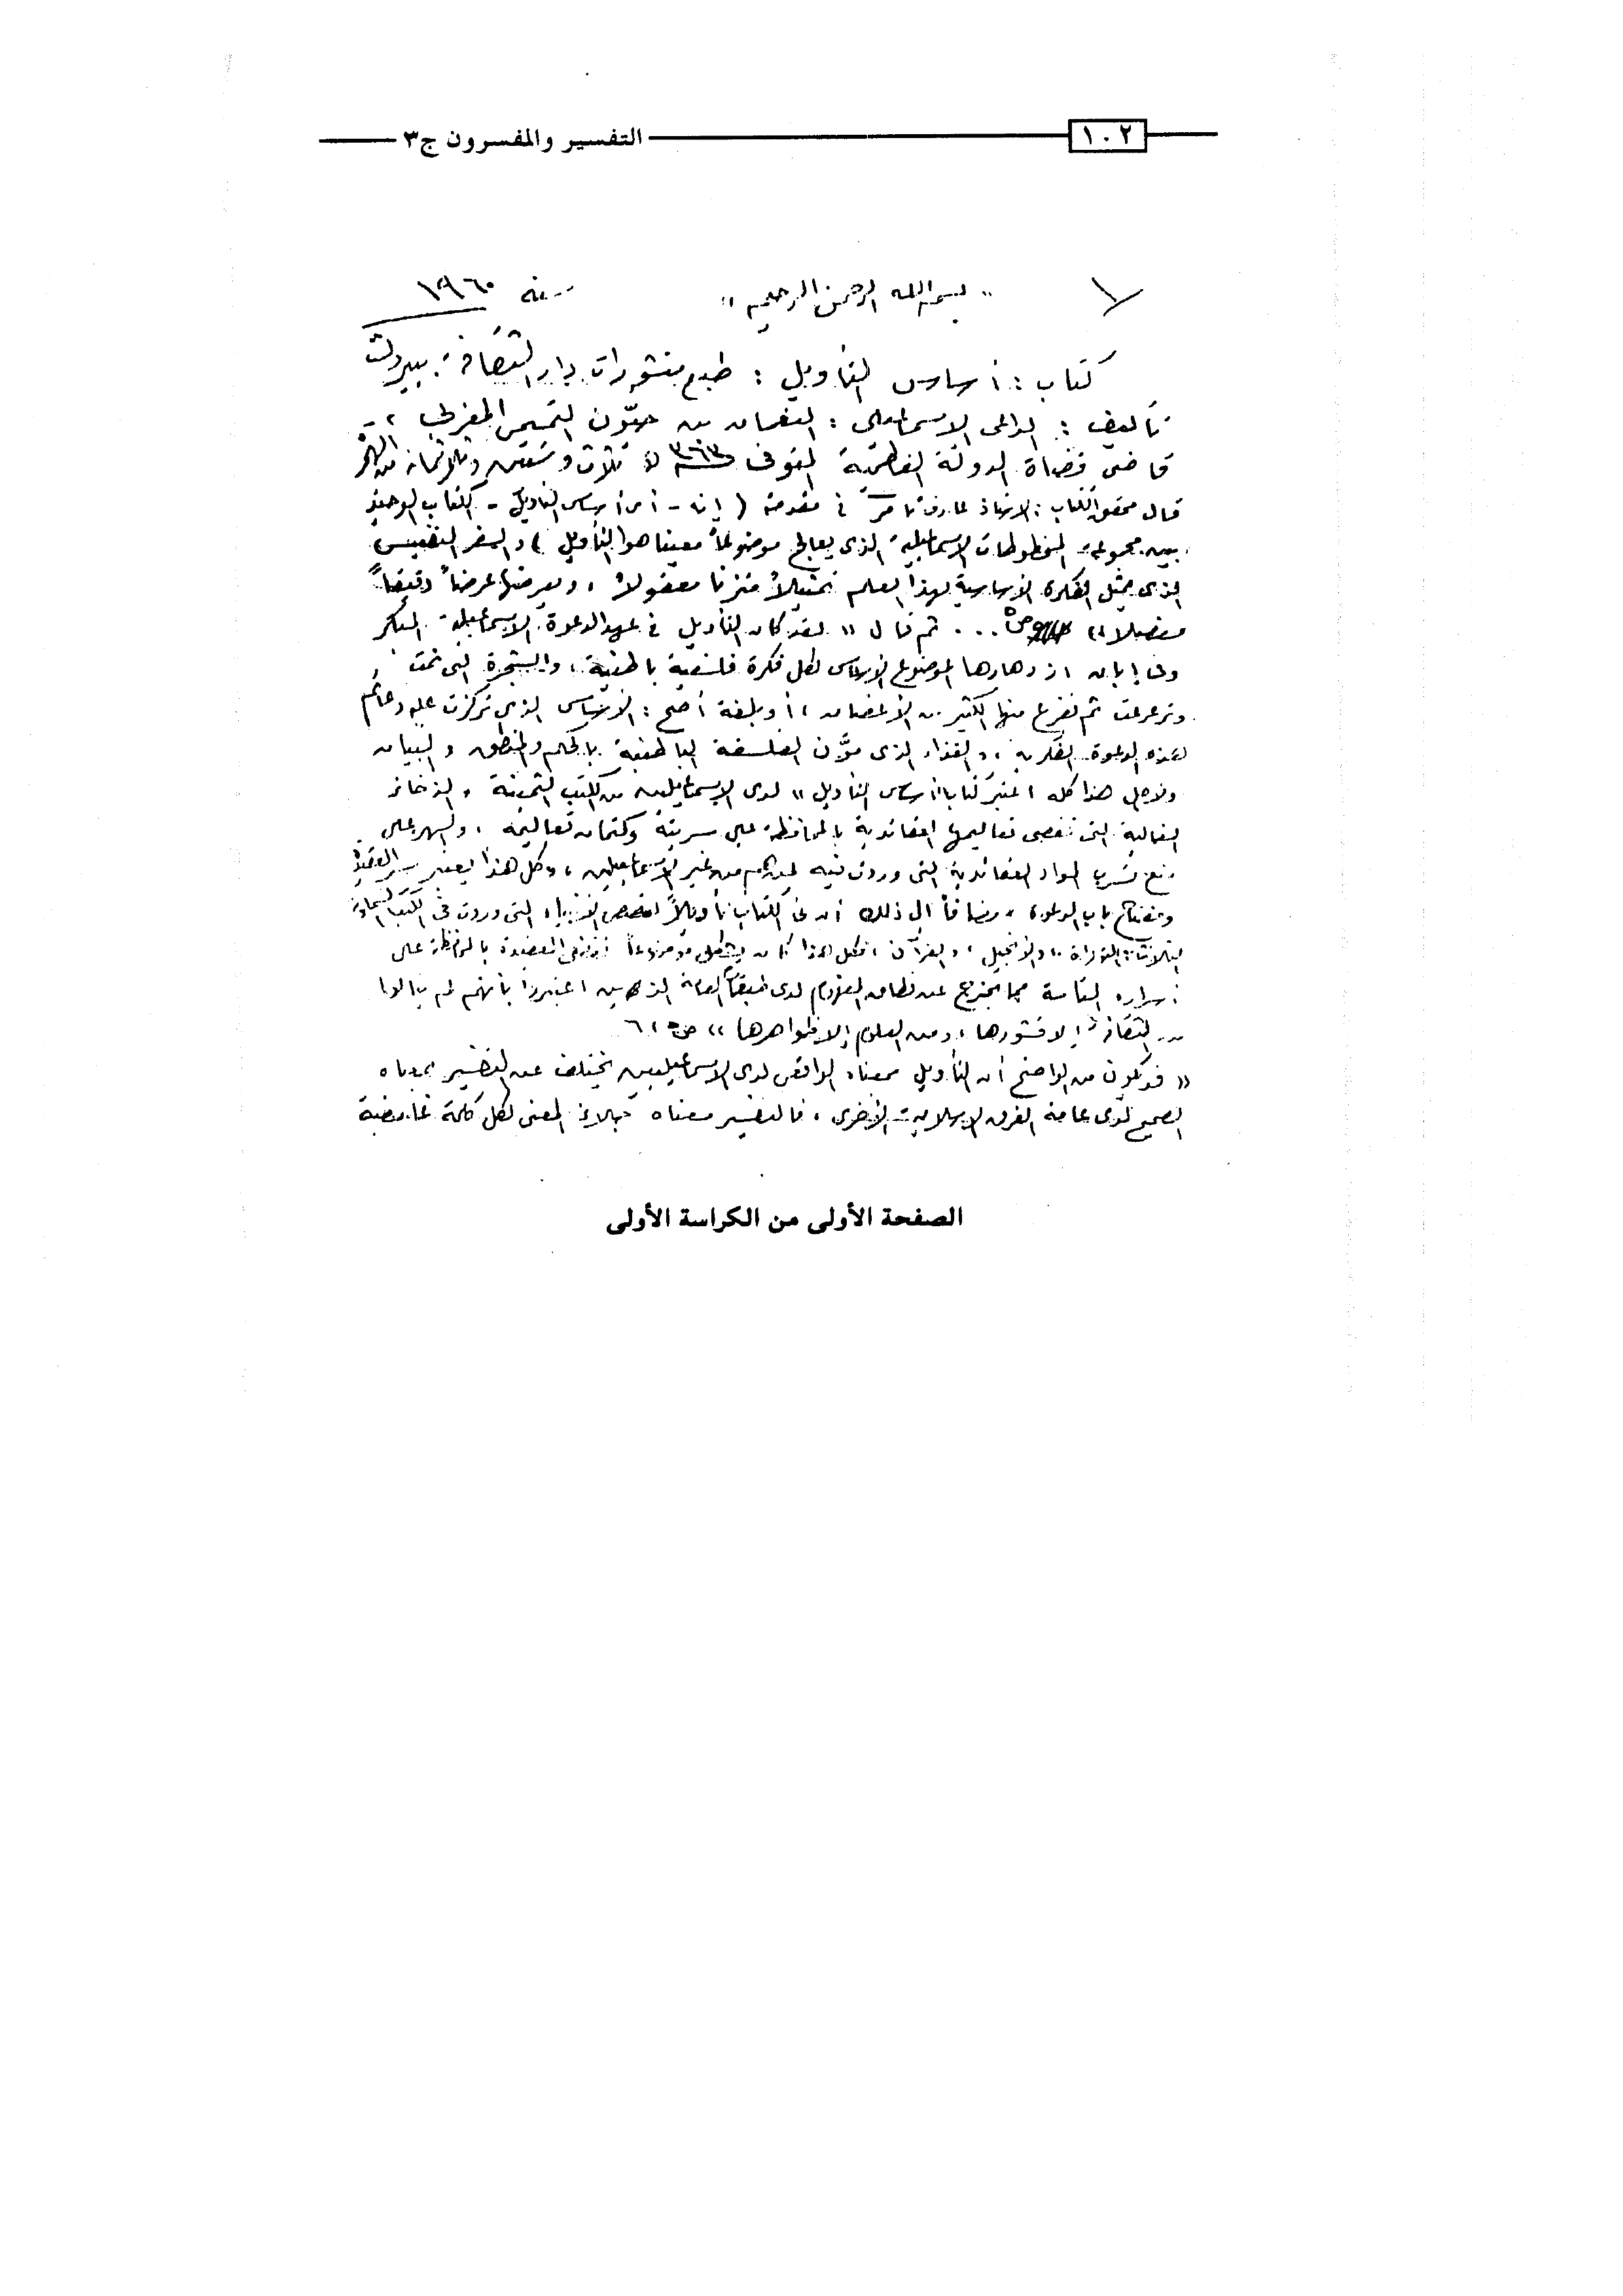 ١٠٢
التفسير والمفسرون ج٣
« بسم الله الرحمن الرحيم »
سنة ١٩٦٠
كتاب : أساس التأويل : طبع منشورات دار الثقافة . بيروت
تأليف : الداعى الاسماعيلى : النعمان بن حيّون التميمى المغربى ،
قاضى قضاة الدولة الفاطمية المتوفى ٣٦٣ هـ ثلاث وستين وثلاثمائة من الهجرة
قال محقق الكتاب : الأستاذ عارف تامر فى مقدمته ( إنه - أى أساس التأويل - الكتاب الوحيد
بين مجموعة المخطوطات الاسماعيلية الذى يعالج موضوعاً معينا هو التأويل ) والسفر النفيس
الذى يمثل الفكرة الأساسية لهذا العلم تمثيلاً متزنا معقولاً ، ويعرضها عرضاً دقيقاً
مفصلا » ص٥ ... ثم قال « لقد كان التأويل فى عهد الدعوة الاسماعيلية المبكر
وفى إبان ازدهارها الموضوع الأساسى لكل فكرة فلسفية باطنية ، والشجرة التى نمت
وترعرعت ثم تفرع منها الكثير من الأغصان ، أو بلغة أصح : الأساس الذى تركزت عليه دعائم
هذه الدعوة الفكرية ، والغذاء الذى موّن الفلسفة الباطنية بالحكم والمنطق والبيان
ولأجل هذا كله اعتبر كتاب أساس التأويل » لدى الاسماعيليين من الكتب الثمينة ، والذخائر
الغالية التى تقضى تعاليمها العقائدية بالمحافظة على سريته وكتمان تعاليمه ، والسهر على
منع تسرب المواد العقائدية التى وردت فيه من غير الاسماعيليين ، وكل هذا يعتبر سر العقيدة
ومفتاح باب الدعوة ، مضافاً الى ذلك أن فى الكتاب تأويلاً لقصص الأنبياء التى وردت فى الكتب السماوية
الثلاثة : التوراة ، والانجيل ، والقرآن ، فكل هذا كان يشكل موضوعاً تقضى العقيدة بالمحافظة على
أسراره التامة مما يخرج عن نطاق المفهوم لدى طبقة العامة الذين اعتبروا بأنهم لم ينالوا
من الثقافة إلا قشورها ، ومن العلوم إلا ظواهرها » ص ٥ ، ٦
« فيكون من الواضح أن التأويل بمعناه الواقعى لدى الاسماعيليين يختلف عن التفسير بمعناه
الصحيح لدى عامة الفرق الاسلامية الأخرى ، فالتفسير معناه المعنى لكل كلمة غامضة
الصفحة الأولى من الكراسة الأولى